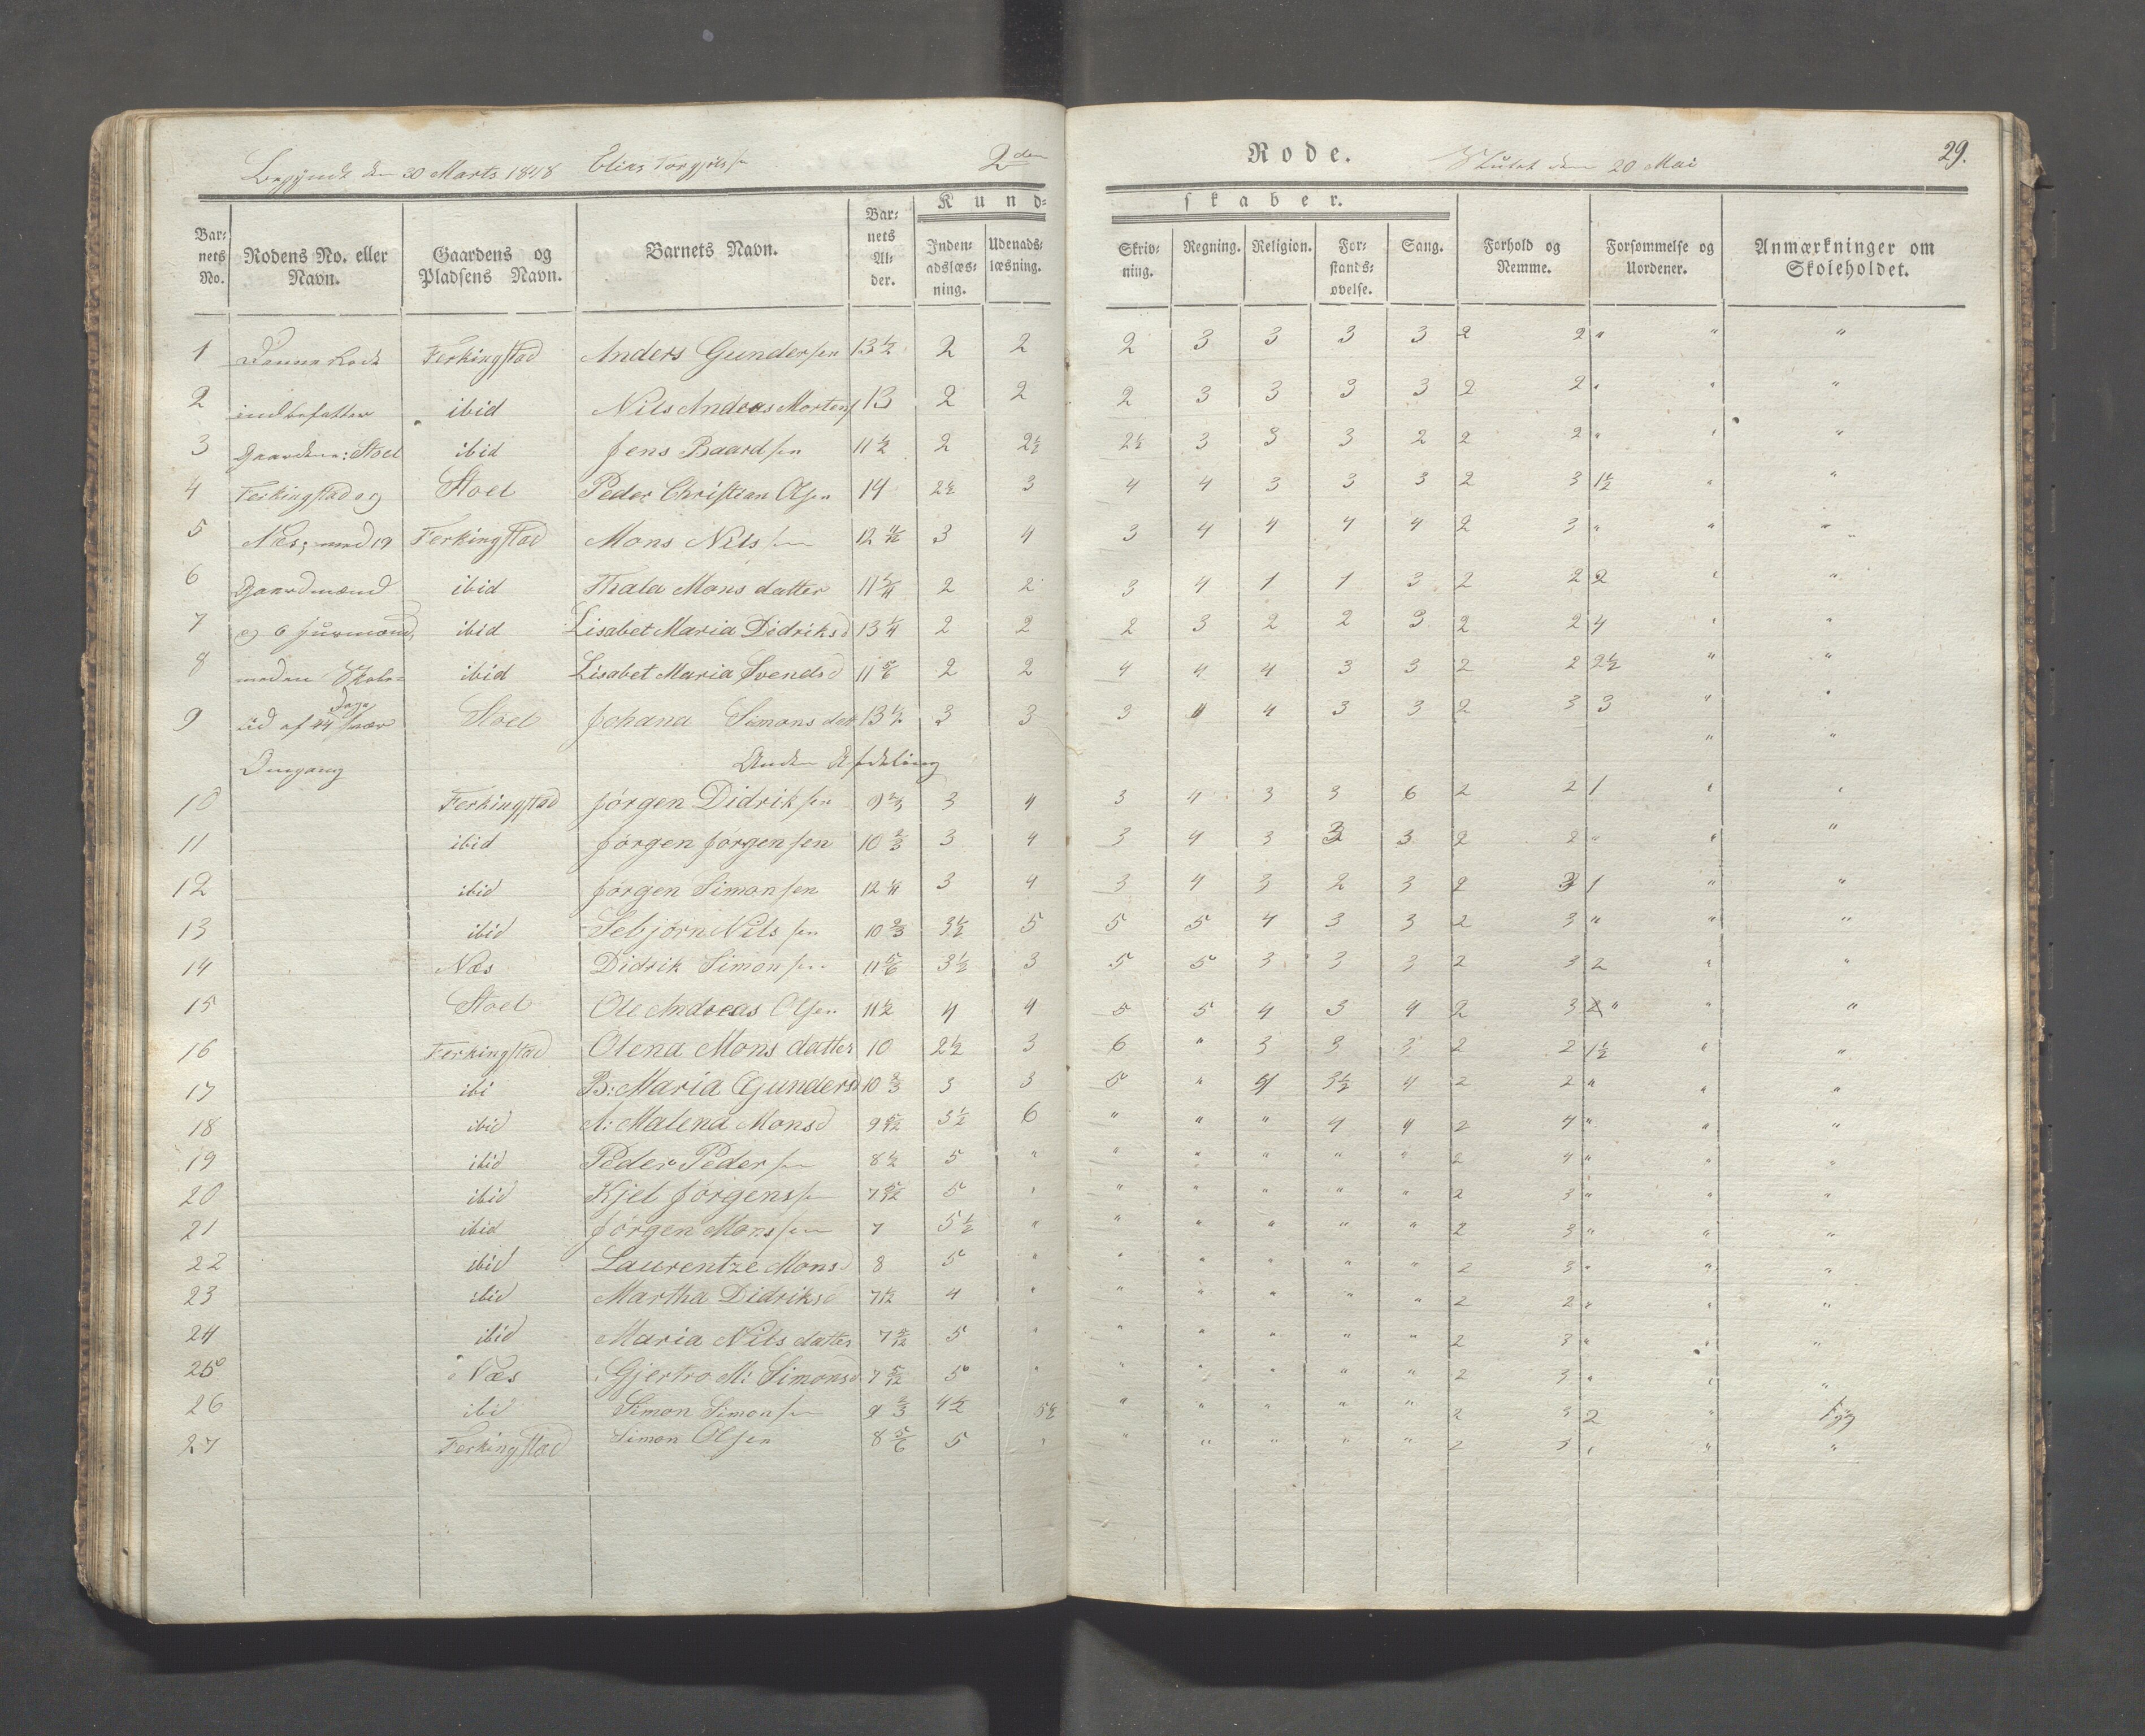 Begyndt den 30 Marts 1848 Elias Torgjilss 2den Rode. Sluttet den 20 Mai 29.
Kundskaber.
Barnets No. Rodens No. eller Navn. Gaardens og Pladsens Navn. Barnets Navn. Barnets Alder. Indenadslæsning. Udenadslæsning. Skrivning. Regning. Religion. Forstandsøvelse. Sang. Forhold og Nemme. Forsømmelse og Uordener. Anmærkninger om Skoleholdet.
1 Denne Rode Ferkingstad Anders Gundersen 13 1/2 2 2 2 3 3 3 3 2 2 " " "
2 indbefatter ibid Nils Andreas Mortens 13 2 2 2 3 3 3 3 2 2 " " "
3 Gaardene: Stoel ibid Jens Baardsen 11 1/2 2 2 1/2 2 1/2 3 3 3 2 2 2 " " "
4 Ferkingstad og Stoel Peder Christian Olsen 14 2 1/2 3 4 4 3 3 3 2 3 1 1/2 " "
5 Næs; med 19 Ferkingstad Mons Nilssen 12 3 4 3 4 4 4 4 2 3 " " "
6 Gaardmænd ibid Thala Mons datter 11 1/4 2 2 3 4 1 1 3 2 2 2 " "
7 og 6 ibid Lisabet Maria Didriksd 13 1/4 2 2 2 3 2 2 3 2 2 4 " "
8 med en Skole= ibid Lisabet Maria Svendsd 11 5/6 2 2 4 4 4 3 3 2 2 2 1/2 " "
9 tid af 24 Dage hver Stoel Johana Simons dat 13 1/2 3 3 3 4 4 3 3 2 3 3 " "
Omgang Anden Afdeling " "
10 Ferkingstad Jørgen Didriksen 9 2/3 3 4 3 4 3 3 6 2 2 1 " "
11 ibid Jørgen Jørgensen 10 2/3 3 4 3 4 3 3 3 2 2 " " "
12 ibid Jørgen Simonsen 12 1/4 3 4 3 4 3 2 3 2 3 1 " "
13 ibid Sebjørn Nilssen 10 2/3 3 1/2 5 5 5 4 3 3 2 3 " " "
14 Næs Didrik Simonsen 11 5/6 3 1/2 3 5 5 3 3 3 2 3 2 " "
15 Stoel Ole Andreas Olsen 11 1/2 4 4 5 5 4 3 4 2 3 " " "
16 Ferkingstad Olena Mons datter 10 2 1/2 3 6 " 3 3 3 2 2 1 1/2 " "
17 ibi B: Maria Gundersd 10 2/3 3 3 5 " 4 3 1/2 4 2 2 " " "
18 ibid A: Malena Monsd 9 5/12 3 1/2 6 " " " 4 4 2 4 " " "
19 ibid Peder Pedersen 8 1/2 5 " " " " " " 2 4 " " "
20 ibid Kjel Jørgenss 7 5/12 5 " " " " " " 2 3 " " "
21 ibid Jørgen Monssen 7 5 1/2 " " " " " " 2 3 " " "
22 ibid Laurentze Monsd 8 5 " " " " " " 2 3 " " "
23 ibid Martha Didriksd 7 1/2 4 " " " " " " 2 2 " " "
24 ibid Maria Nils datter 7 5/12 5 " " " " " " 2 3 " " "
25 Næs Gjertro M: Simonsd 7 5/12 5 " " " " " " 2 3 " " "
26 ibid Simon Simonsen 9 2/3 4 1/2 5 1/2 " " " " " 2 3 2 "
27 Ferkingstad Simon Olsen 8 5/6 5 " " " " " " 2 3 " " "